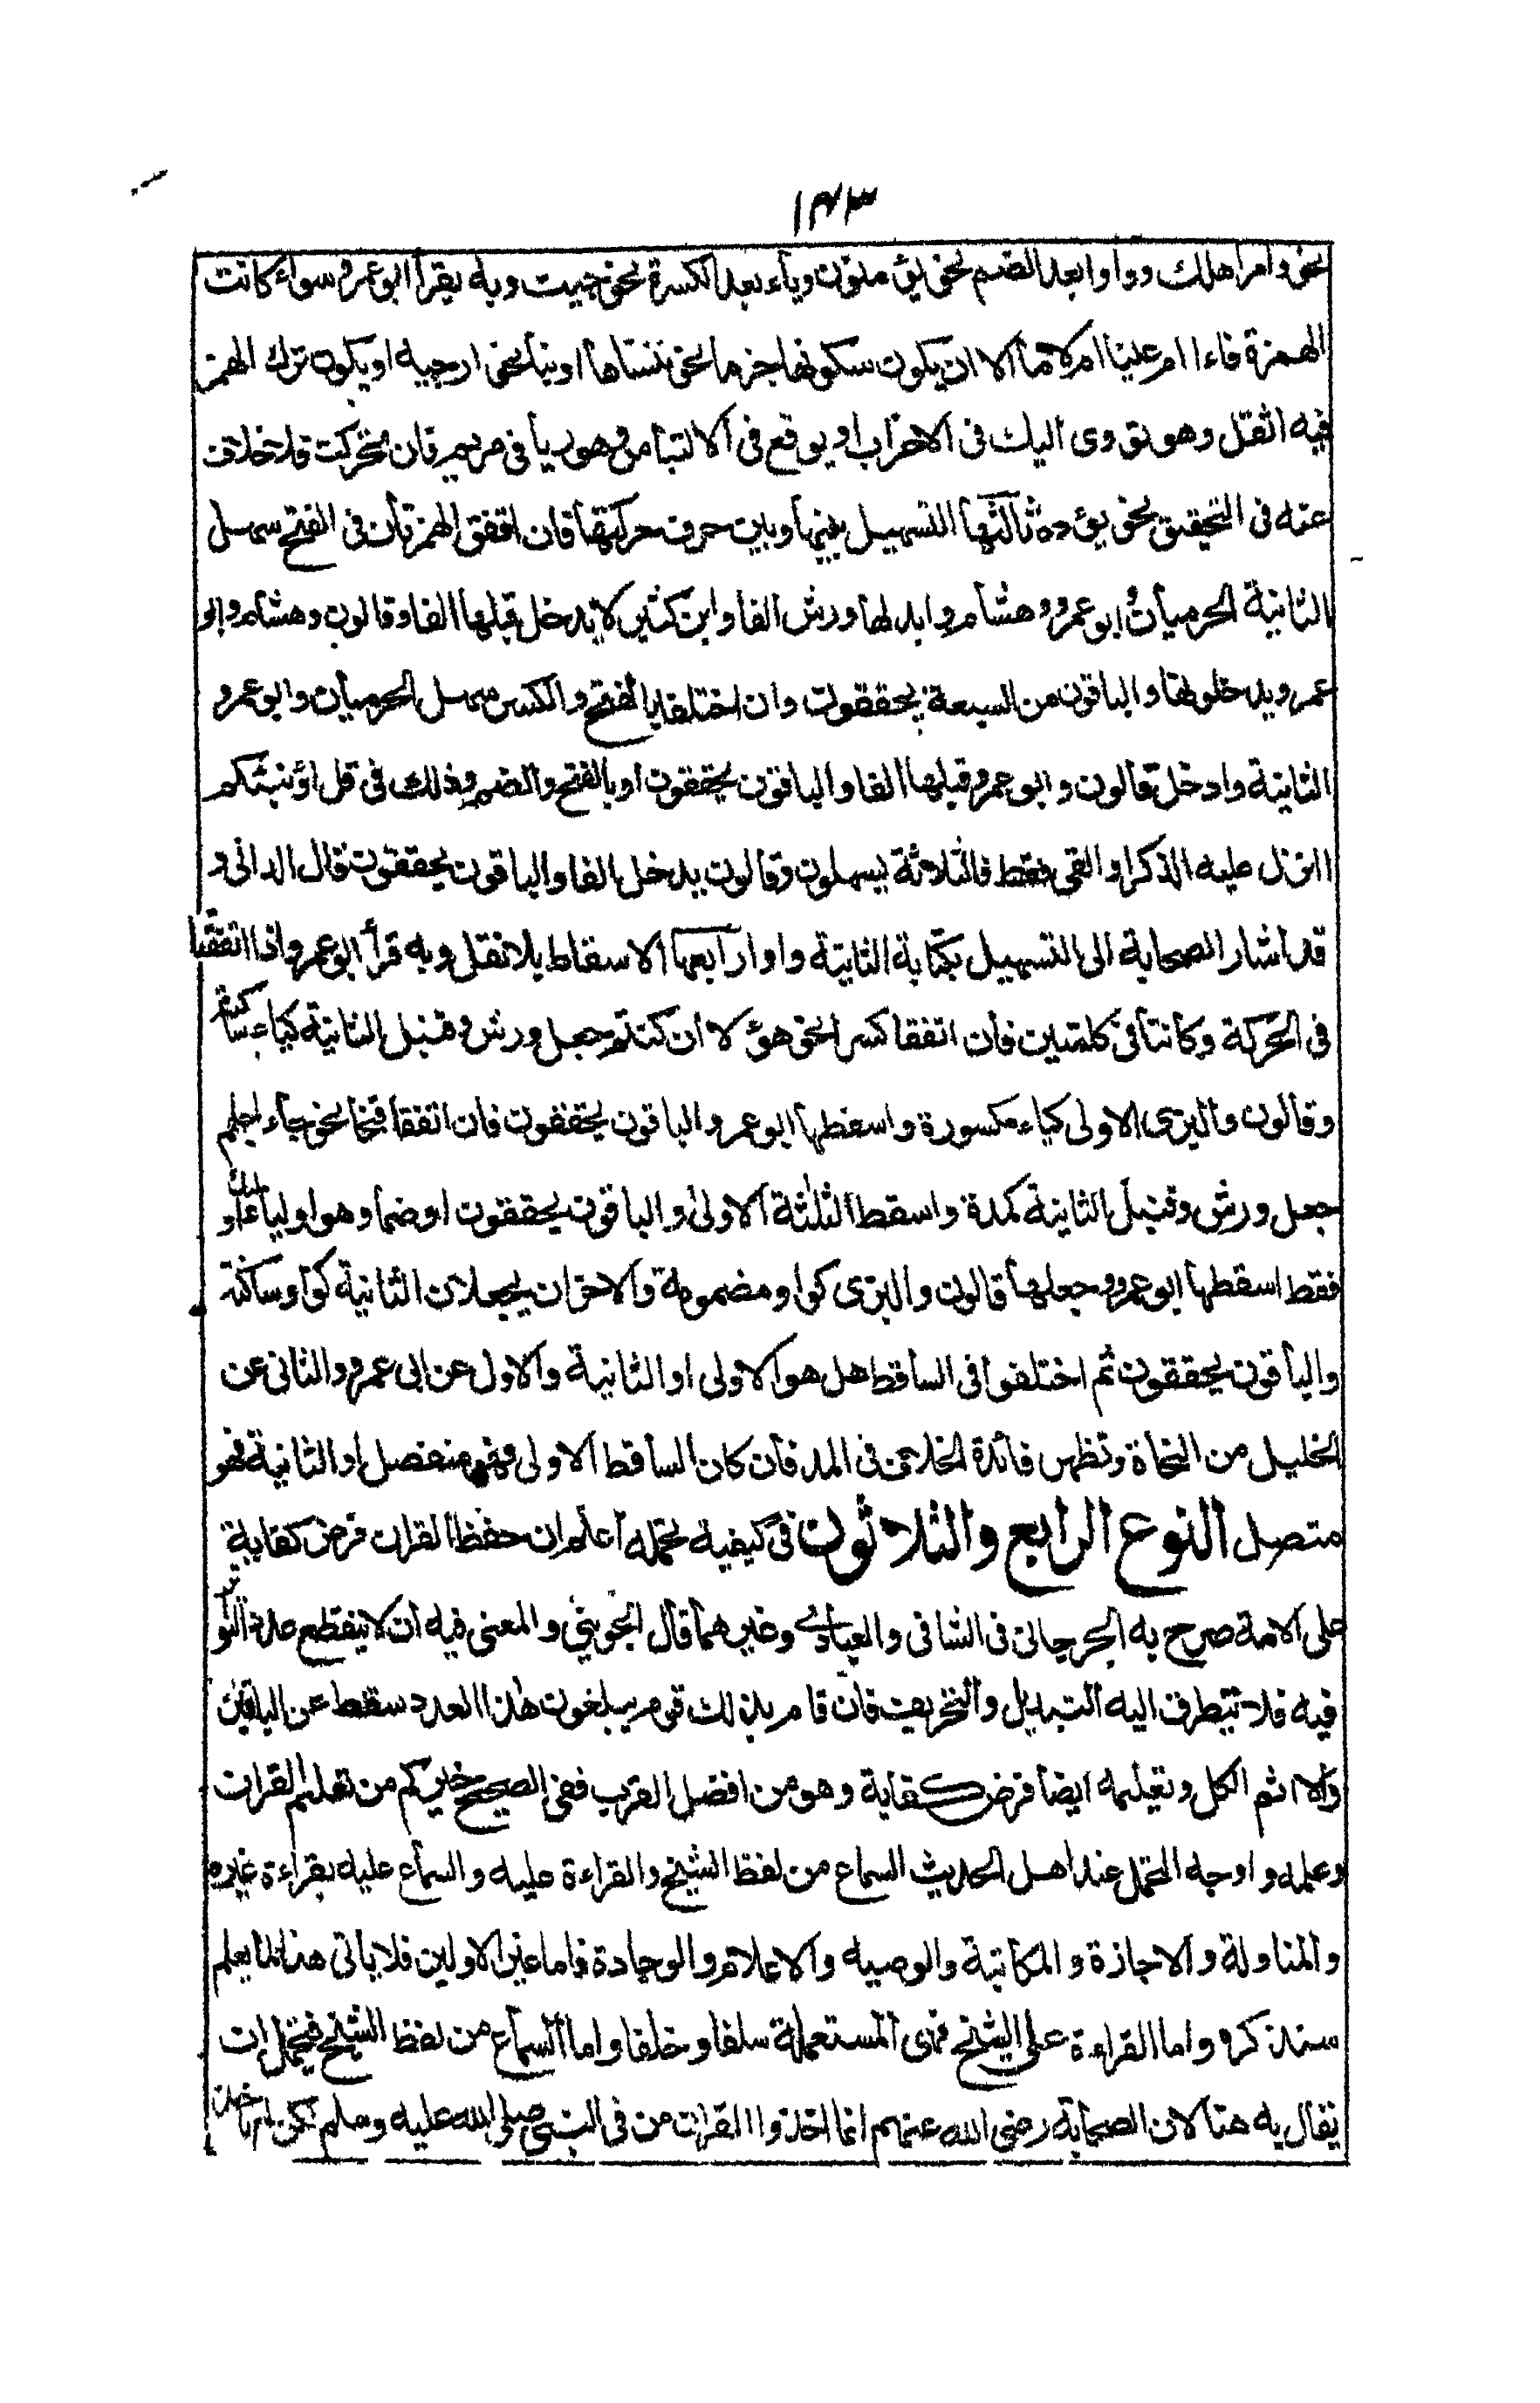 ١٤٣
نحو وامر اهلك وواوا بعد الضم نحو يؤمنون وياء بعد الكسرة نحو جيت وبه يقرأ ابو عمرو سواء كانت
الهمزة فاء ام عينا ام لاما الا ان يكون سكونها جزما نحو ننساها او بناء نحو ارجيه او يكون ترك الهمز
فيه اثقل وهو تؤوى اليك فى الاحزاب او يوقع فى الالتباس وهو ريا فى مريم فان تحركت فلا خلاف
عنه فى التحقيق نحو يؤده ثالثها التسهيل بينها وبين حرف حركتها فان اتفق الهمزتان فى الفتح سهل
الثانية الحرميان وابو عمرو وهشام وابدلها ورش الفا وابن كثير لا يدخل قبلها الفا وقالون وهشام وابو
عمرو يدخلونها والباقون من السبعة يحققون وان اختلفا بالفتح والكسر سهل الحرميان وابو عمرو
الثانية وادخل قالون وابو عمرو قبلها الفا والباقون يحققون او بالفتح والضم وذلك فى قل اؤنبئكم
اانزل عليه الذكر او القى فقط فالثلاثة يسهلون وقالون يدخل الفا والباقون يحققون قال الدانى و
قد اشار الصحابة الى التسهيل بكتابة الثانية واوا رابعها الاسقاط بلا نقل وبه قرأ ابو عمرو اذا اتفقتا
فى الحركة وكانتا فى كلمتين فان اتفقا كسرا نحو هؤلا ان كنتم جعل ورش وقنبل الثانية كياء ساكنة
وقالون والبزى الاولى كياء مكسورة واسقطها ابو عمرو والباقون يحققون فان اتفقا فتحا نحو جاء اجلهم
جعل ورش وقنبل الثانية كمدة واسقط الثلثة الاولى والباقون يحققون او ضما وهو اولياء اولئك
فقط اسقطها ابو عمرو وجعلها قالون والبزى كواو مضمومة والاخران يجعلان الثانية كواو ساكنة
والباقون يحققون ثم اختلفوا فى الساقط هل هو الاولى او الثانية والاول عن ابى عمرو والثانى عن
الخليل من النحاة وتظهر فائدة الخلاف فى المد فان كان الساقط الاولى فهو منفصل او الثانية فهو
متصل النوع الرابع والثلاثون فى كيفية تحمله اعلم ان حفظ القران فرض كفاية
على الامة صرح به الجرجانى فى الشافى والعبادى وغيرهما قال الجوينى والمعنى فيه ان لا ينقطع عدد التواتر
فيه فلا يتطرق اليه التبديل والتحريف فان قام بذلك قوم يبلغون هذا العدد سقط عن الباقين
والا اثم الكل وتعليمه ايضا فرض كفاية وهو من افضل القرب ففى الصحيح خيركم من تعلم القران
وعلمه واوجه التحمل عند اهل الحديث السماع من لفظ الشيخ والقراءة عليه والسماع عليه بقراءة غيره
والمناولة والاجازة والمكاتبة والوصيه والاعلام والوجادة فاما غير الاولين فلا ياتى هنا لما يعلم
سنذكره واما القراءة على الشيخ فهى المستعملة سلفا وخلفا واما السماع من لفظ الشيخ فيحتمل ان
يقال به هنا لان الصحابة رضى الله عنهم انما اخذوا القران من فى النبى صلى الله عليه وسلم لكن لم ياخذ